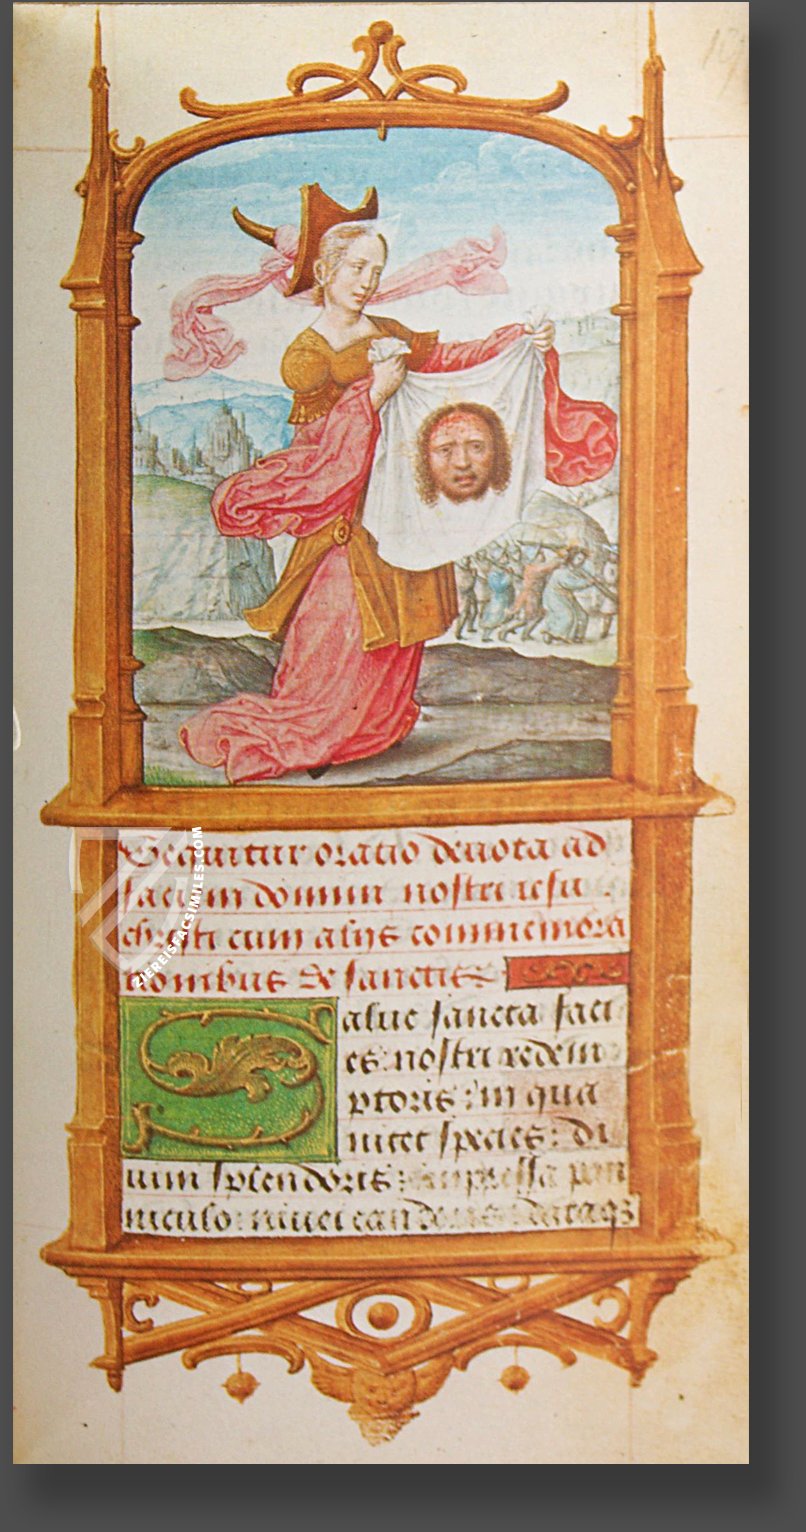 Sequitur oratio deuota ad
faciem domini nostri iesu
christi cum alijs commemora
tionibus de sanctis
Salue sancta faci
es nostri redemp
ptoris: in qua
nitet species: di
uini splendoris: impressa pan
niculo niuei candoris: dataqz
ZIEREISFACSIMILES.COM